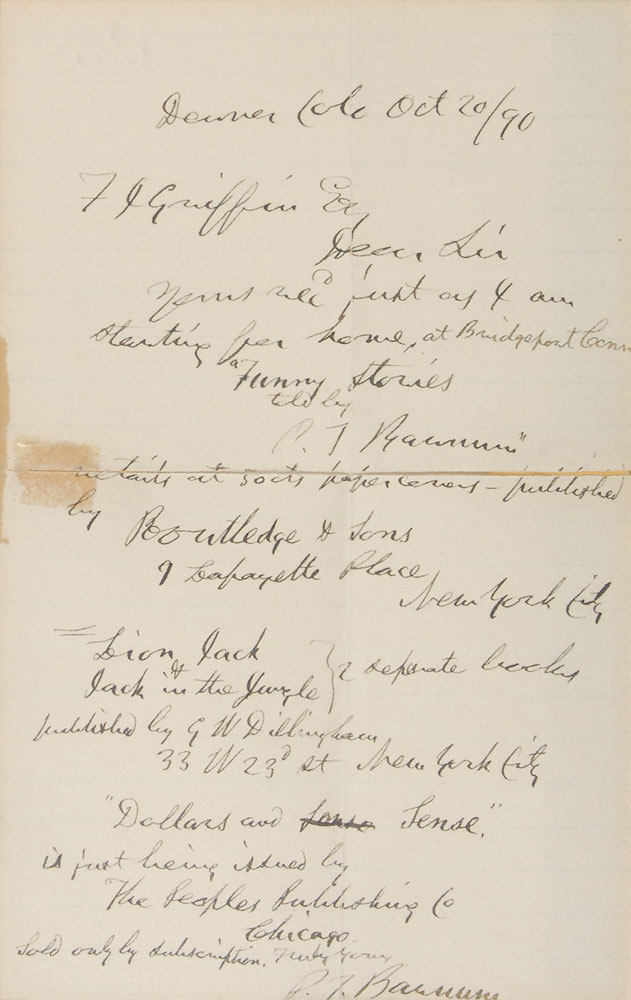 Denver Colo Oct 20/90
F J Griffin Esq
Dear Sir
Yours recd just as I am
starting for home, at Bridgeport Conn
"Funny Stories
told by
P. T. Barnum"
retails at 50cts paper covers - published
by
Routledge & Sons
9 Lafayette Place
New York City
= Lion Jack
&
Jack in the Jungle } 2 separate books
published by G W Dillingham
33 W 23d st New York City
"Dollars and Sense."
is just being issued by
The Peoples Publishing Co
Chicago
Sold only by subscription. Truly Yours
P. T. Barnum